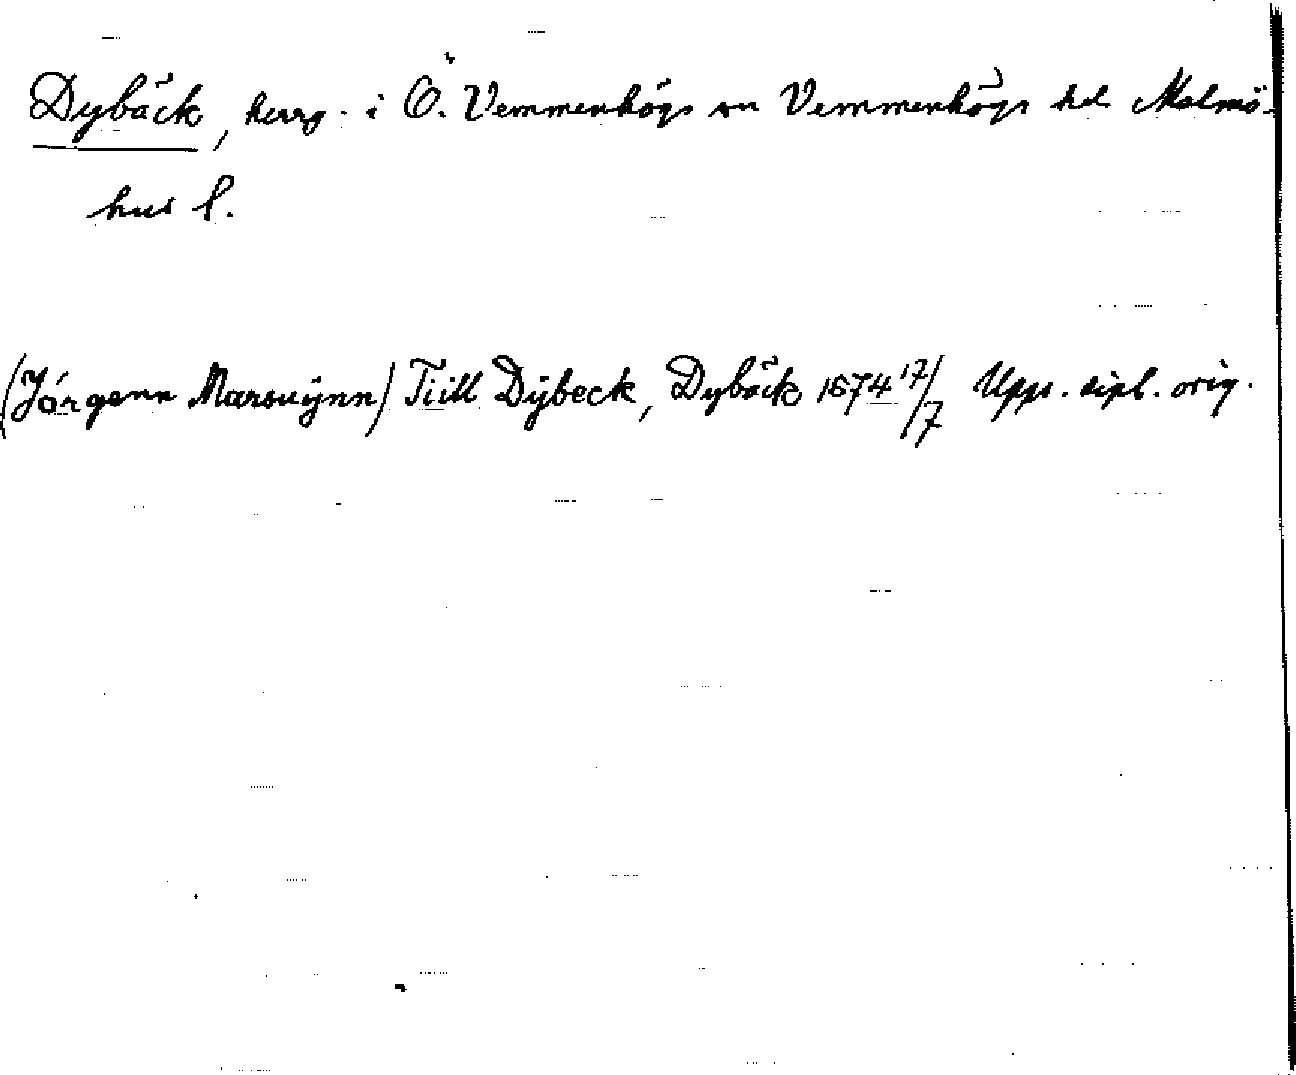 Dybäck, herrg. i Ö. Vemmenhögs sn Vemmenhögs hd Malmö-
hus l.
(Jörgenn Marsuijnn) Tiill Dÿbeck, Dybäck 1574 17/7 Upps. dipl. orig.